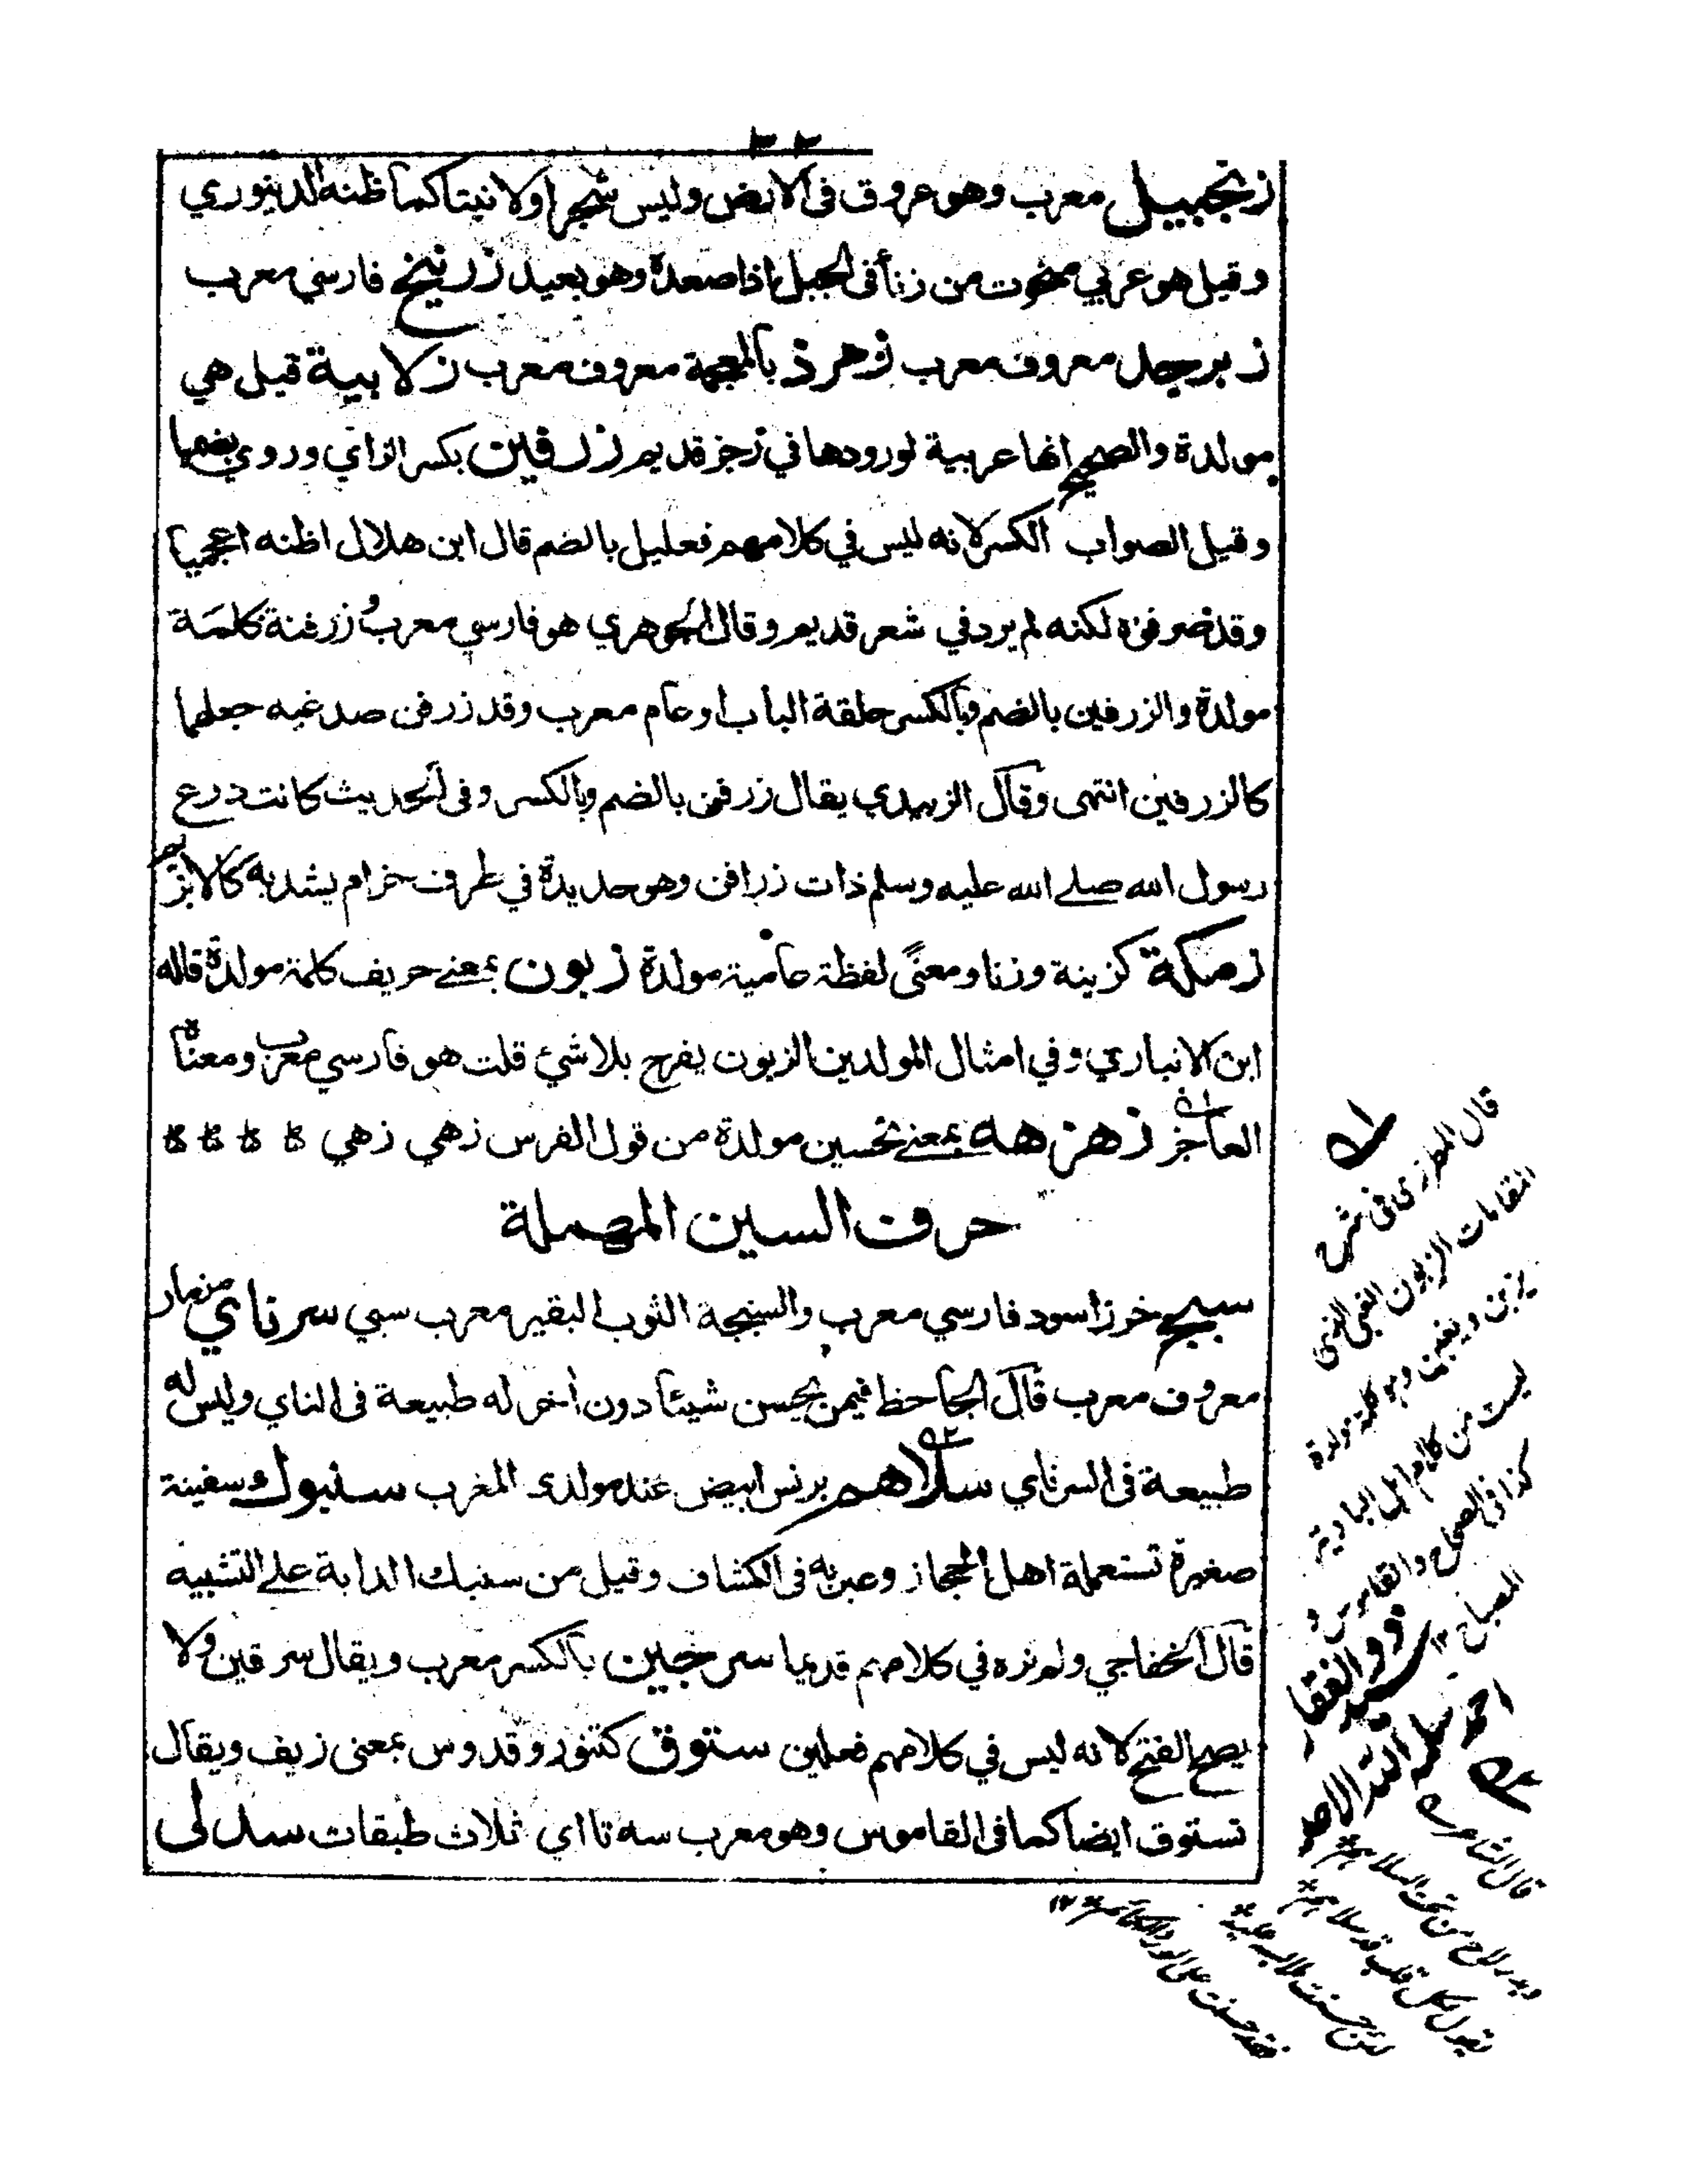 ٣٢
زنجبيل معرب وهو عروق فى الارض وليس شجرا ولا نبتا كما ظنه الدينوري
وقيل هو عربي منحوت من زنأ فى الجبل اذا صعدة وهو بعيد زرنيخ فارسي معرب
زبرجد معروف معرب زمرذ بالمعجمة معروف معرب زلابية قيل هي
مولدة والصحيح انها عربية لورودها في رجز قديم زرفين بكسر الزاي وروي بضمها
وقيل الصواب الكسر لانه ليس في كلامهم فعليل بالضم قال ابن هلال اظنه اعجميا
وقد صرفوه لكنه لم يرد في شعر قديم وقال الجوهري هو فارسي معرب وزرفنة كلمة
مولدة والزرفين بالضم وبالكسر حلقة الباب او عام معرب وقد زرفن صدغيه جعلهما
كالزرفين انتهى وقال الزبيدي يقال زرفن بالضم وبالكسر وفى الحديث كانت درع
رسول الله صلے الله عليه وسلم ذات زرافن وهو حديدة في طرف حزام يشد به كالابزيم
زمكة كزينة وزنا ومعنًى لفظة عامية مولدة زبون بمعنے حريف كلمة مولدة قاله
ابن الانباري وفي امثال المولدين الزبون يفرح بلا شئ قلت هو فارسي معرب ومعناه
العاجز زهزهه بمعنے تحسين مولدة من قول الفرس زهي زهي
حرف السين المهملة
سبج خرز اسود فارسي معرب والسبجة الثوب البقير معرب سبي سرناي مزمار
معروف معرب قال الجاحظ فيمن يحسن شيئا دون أخر له طبيعة فى الناي وليس له
طبيعة فى السرناي سلاهم برنس ابيض عند مولدى المغرب سنبوك سفينة
صغيرة تستعملة اهل الحجاز وعبر به فى الكشاف وقيل من سنبك الدابة علے التشبيه
قال الخفاجي ولم نره في كلامهم قديما سرجين بالكسر معرب ويقال سرقين ولا
يصح الفتح لانه ليس في كلامهم فعلين ستوق كتنور وقدوس بمعنى زيف ويقال
تستوق ايضا كما فى القاموس وهو معرب سه تا اي ثلاث طبقات سدلى
قال المطرزى فى شرح
المقامات الزبون الغبى الذى
يزبن ويغبن وهو كلمة مولدة
ليست من كلام اهل البادية
كذا فى الصحاح والقاموس و
المصباح ١٢
سيد ذو الفقار
احمد سلمه الله الاحد
قال الشاعر